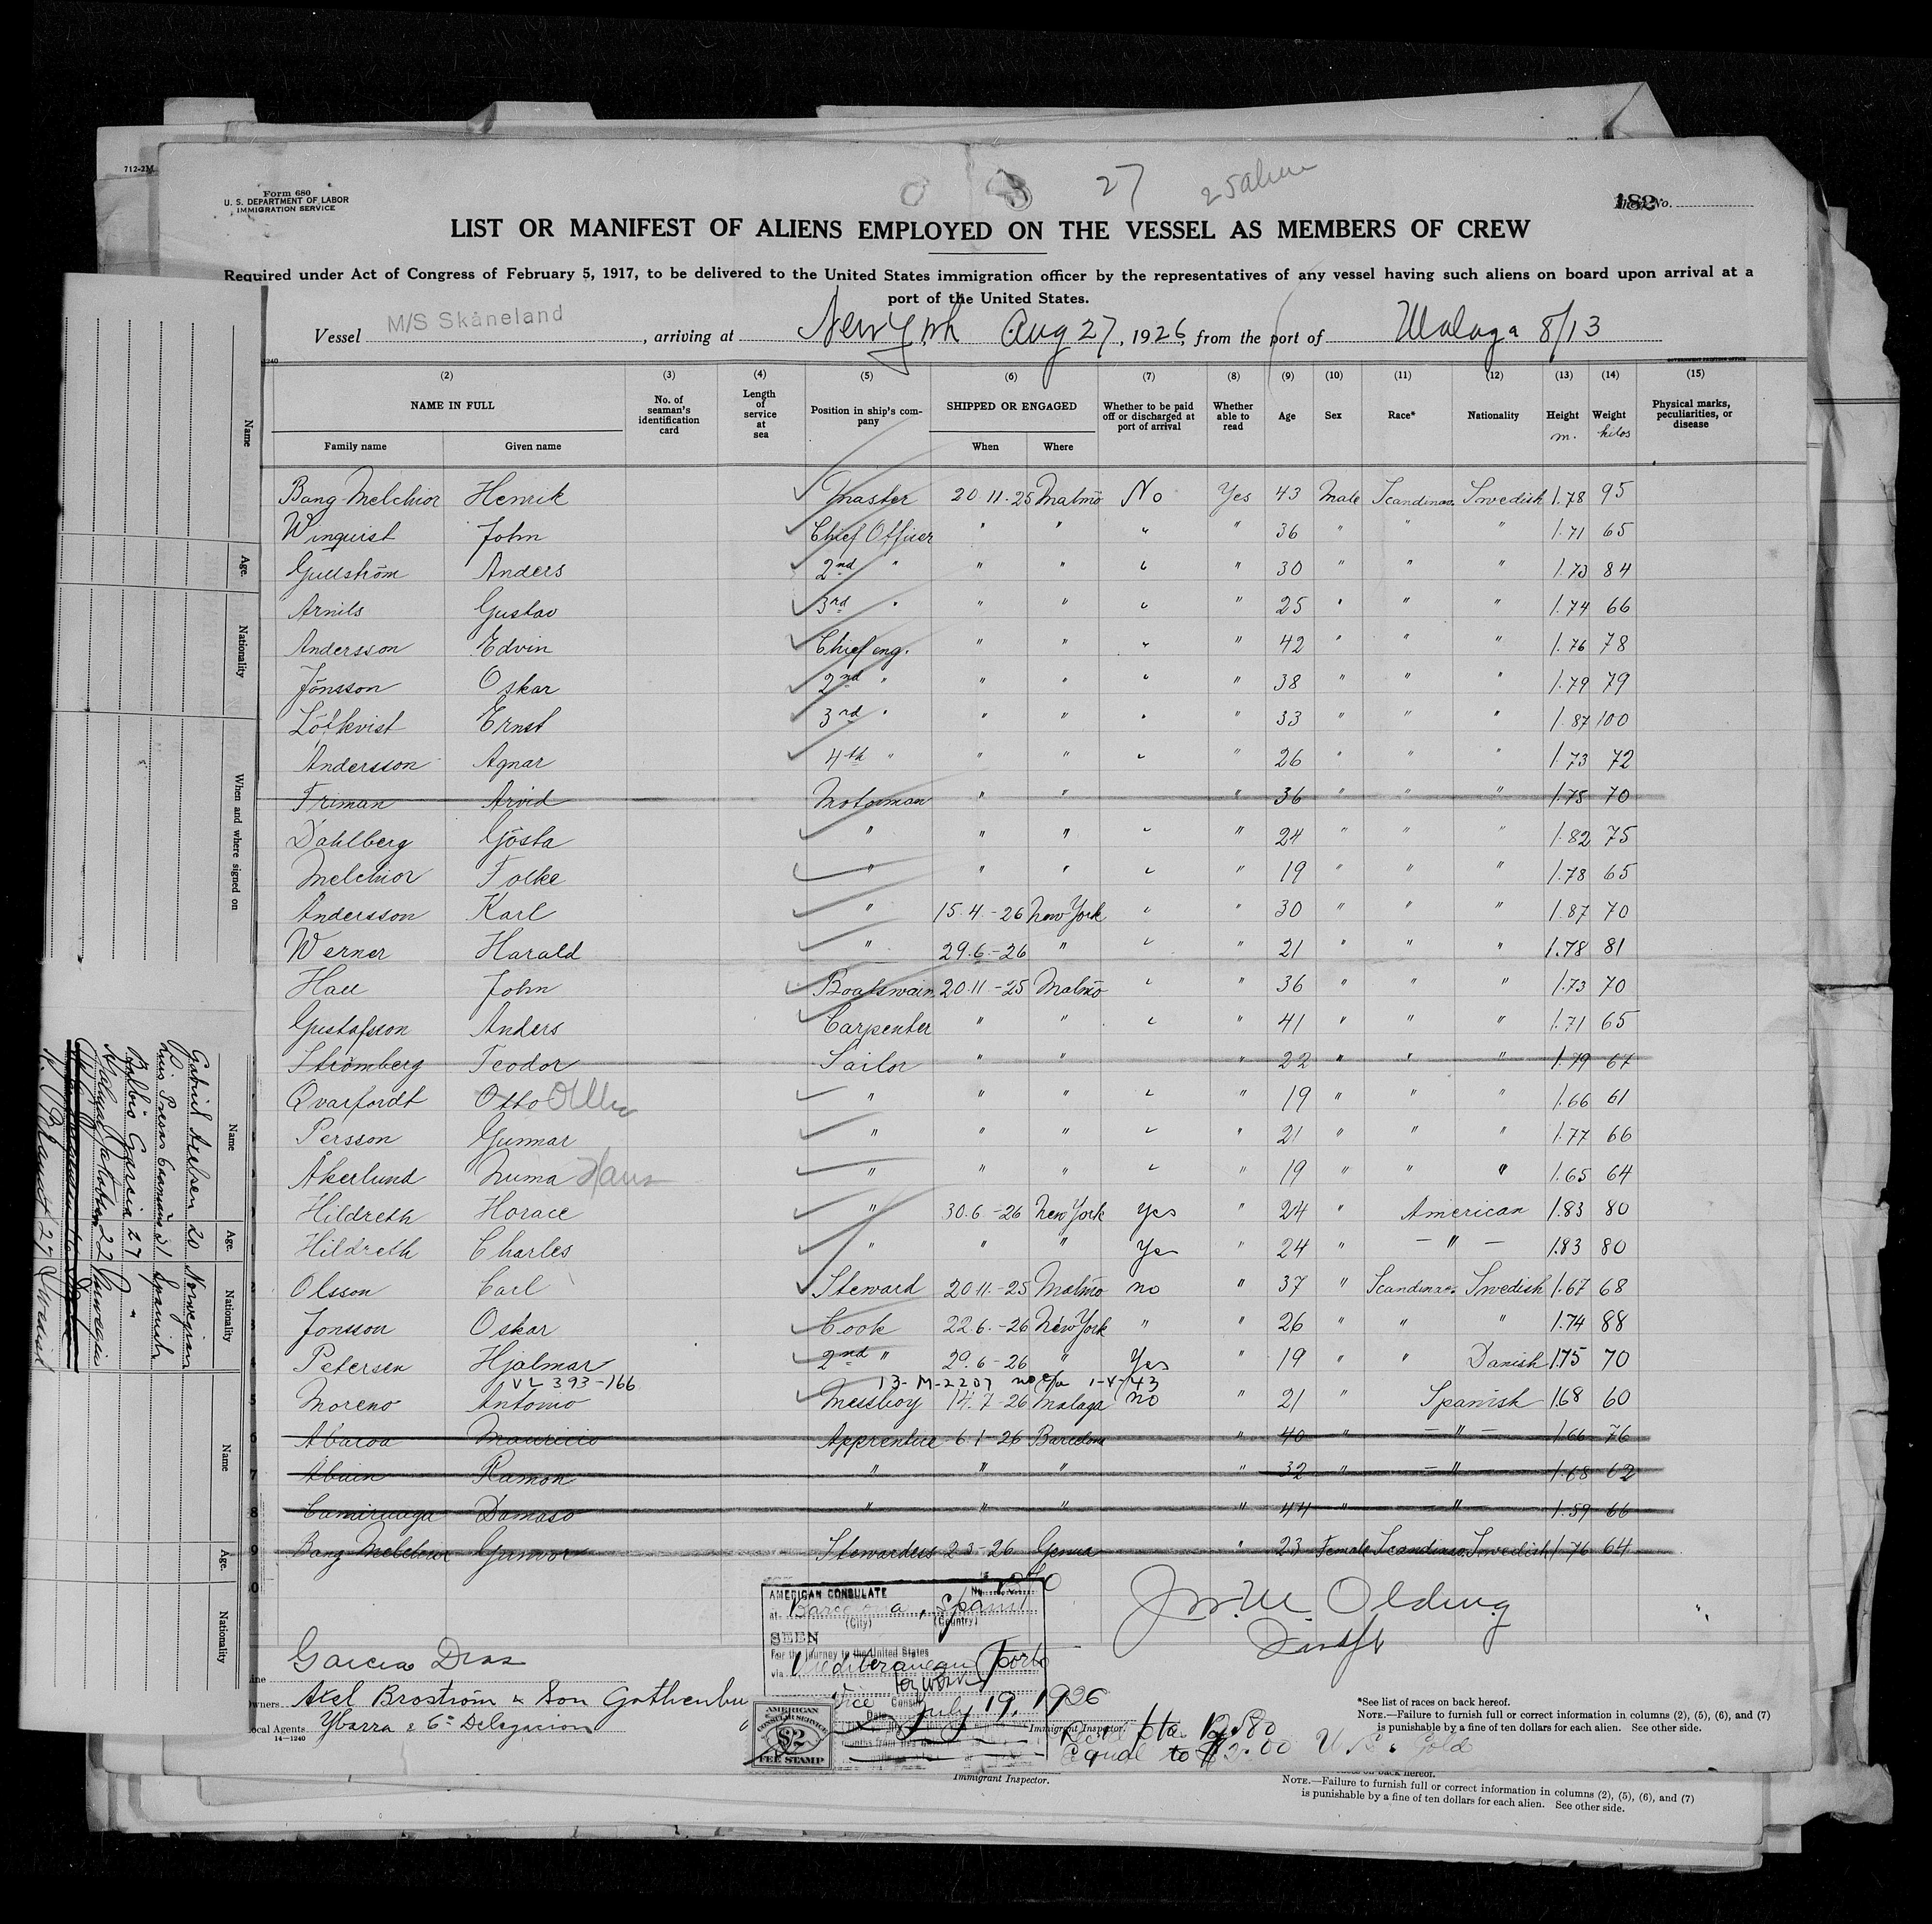 712-2M
Form 680
U. S. DEPARTMENT OF LABOR
IMMIGRATION SERVICE
27
182
No.
LIST OR MANIFEST OF ALIENS EMPLOYED ON THE VESSEL AS MEMBERS OF CREW
Required under Act of Congress of February 5, 1917, to be delivered to the United States immigration officer by the representatives of any vessel having such aliens on board upon arrival at a
port of the United States.
Vessel M/S Skåneland, arriving at New York Aug 27, 1926, from the port of Malaga 8/13
(2) (3) (4) (5) (6) (7) (8) (9) (10) (11) (12) (13) (14) (15)
NAME IN FULL No. of seaman's identification card Length of service at sea Position in ship's company SHIPPED OR ENGAGED Whether to be paid off or discharged at port of arrival Whether able to read Age Sex Race* Nationality Height m. Weight kilos Physical marks, peculiarities, or disease
Family name Given name When Where
Bang-Melchior Henrik Master 20 11-25 Malmö No Yes 43 Male Scandinav. Swedish 1.78 95
Winquist John Chief Officer " " " " 36 " " " 1.71 65
Gullström Anders 2nd " " " " " 30 " " " 1.73 84
Arnils Gustav 3rd " " " " " 25 " " " 1.74 66
Andersson Edvin Chief eng. " " " " 42 " " " 1.76 78
Jönsson Oskar 2nd " " " " " 38 " " " 1.79 79
Löfkvist Ernst 3rd " " " " " 33 " " " 1.87 100
Andersson Agnar 4th " " " " " 26 " " " 1.73 72
Friman Arvid Motorman " " " 36 " " " 1.75 70
Dahlberg Gösta " " " " " 24 " " " 1.82 75
Melchior Folke " " " " " 19 " " " 1.78 65
Andersson Karl " 15.4.-26 New York " " 30 " " " 1.87 70
Werner Harald " 29.6.-26 " " " 21 " " " 1.78 81
Hall John Boatswain 20.11-25 Malmö " " 36 " " " 1.73 70
Gustafsson Anders Carpenter " " " " 41 " " " 1.71 65
Strömberg Teodor Sailor " " " 22 " " " 1.79 67
Qvarfordt Otto " " " " " 19 " " " 1.66 61
Persson Gunnar " " " " " 21 " " " 1.77 66
Åkerlund Numa Hans " " " " " 19 " " " 1.65 64
Hildreth Horace " 30.6.-26 New York Yes " 24 " American 1.83 80
Hildreth Charles " " " Yes " 24 " — " — 1.83 80
Olsson Carl Steward 20 11.-25 Malmö no " 37 " Scandinav. Swedish 1.67 68
Jonsson Oskar Cook 22.6.-26 New York " " 26 " " " 1.74 88
Petersen Hjalmar 2nd " 29.6-26 " Yes " 19 " " Danish 1.75 70
VL 393-166
Moreno Antonio Messboy 14.7-26 Malaga no " 21 " Spanish 1.68 60
Abacoa Mauricio Apprentice 6.1-26 Barcelona " 40 " — " — 1.66 76
Ramon " " " " 32 " — " 1.68 62
Damaso " " " " 44 " — " 1.59 66
Bang-Melchior Gunvor Stewardess 2 3-26 Genua " 23 Female Scandinav. Swedish 1.76 64
AMERICAN CONSULATE
No.
at Barcelona, Spain
(City) (Country)
SEEN
For the journey to the United States
via Mediteranean Ports
Vice Consul
Date July 19, 1926
AMERICAN
CONSULAR SERVICE
$2
FEE STAMP
Garcia Diaz
Owners Axel Broström & Son Gothenbu
Local Agents Ybarra & Cº Delegacion
14—1240
Immigrant Inspector.
equal to $2.00 U. S. Gold
*See list of races on back hereof.
NOTE.—Failure to furnish full or correct information in columns (2), (5), (6), and (7)
is punishable by a fine of ten dollars for each alien. See other side.
Immigrant Inspector.
on back hereof.
NOTE.—Failure to furnish full or correct information in columns (2), (5), (6), and (7)
is punishable by a fine of ten dollars for each alien. See other side.
Name
Age.
Nationality
When and where signed on
Name
Age.
Nationality
Gabriel Axelsen 20 Norwegian
31 Spanish
Garcia 27 "
22 Norwegian
Brandt 27 Swedish
Name
Age.
Nationality